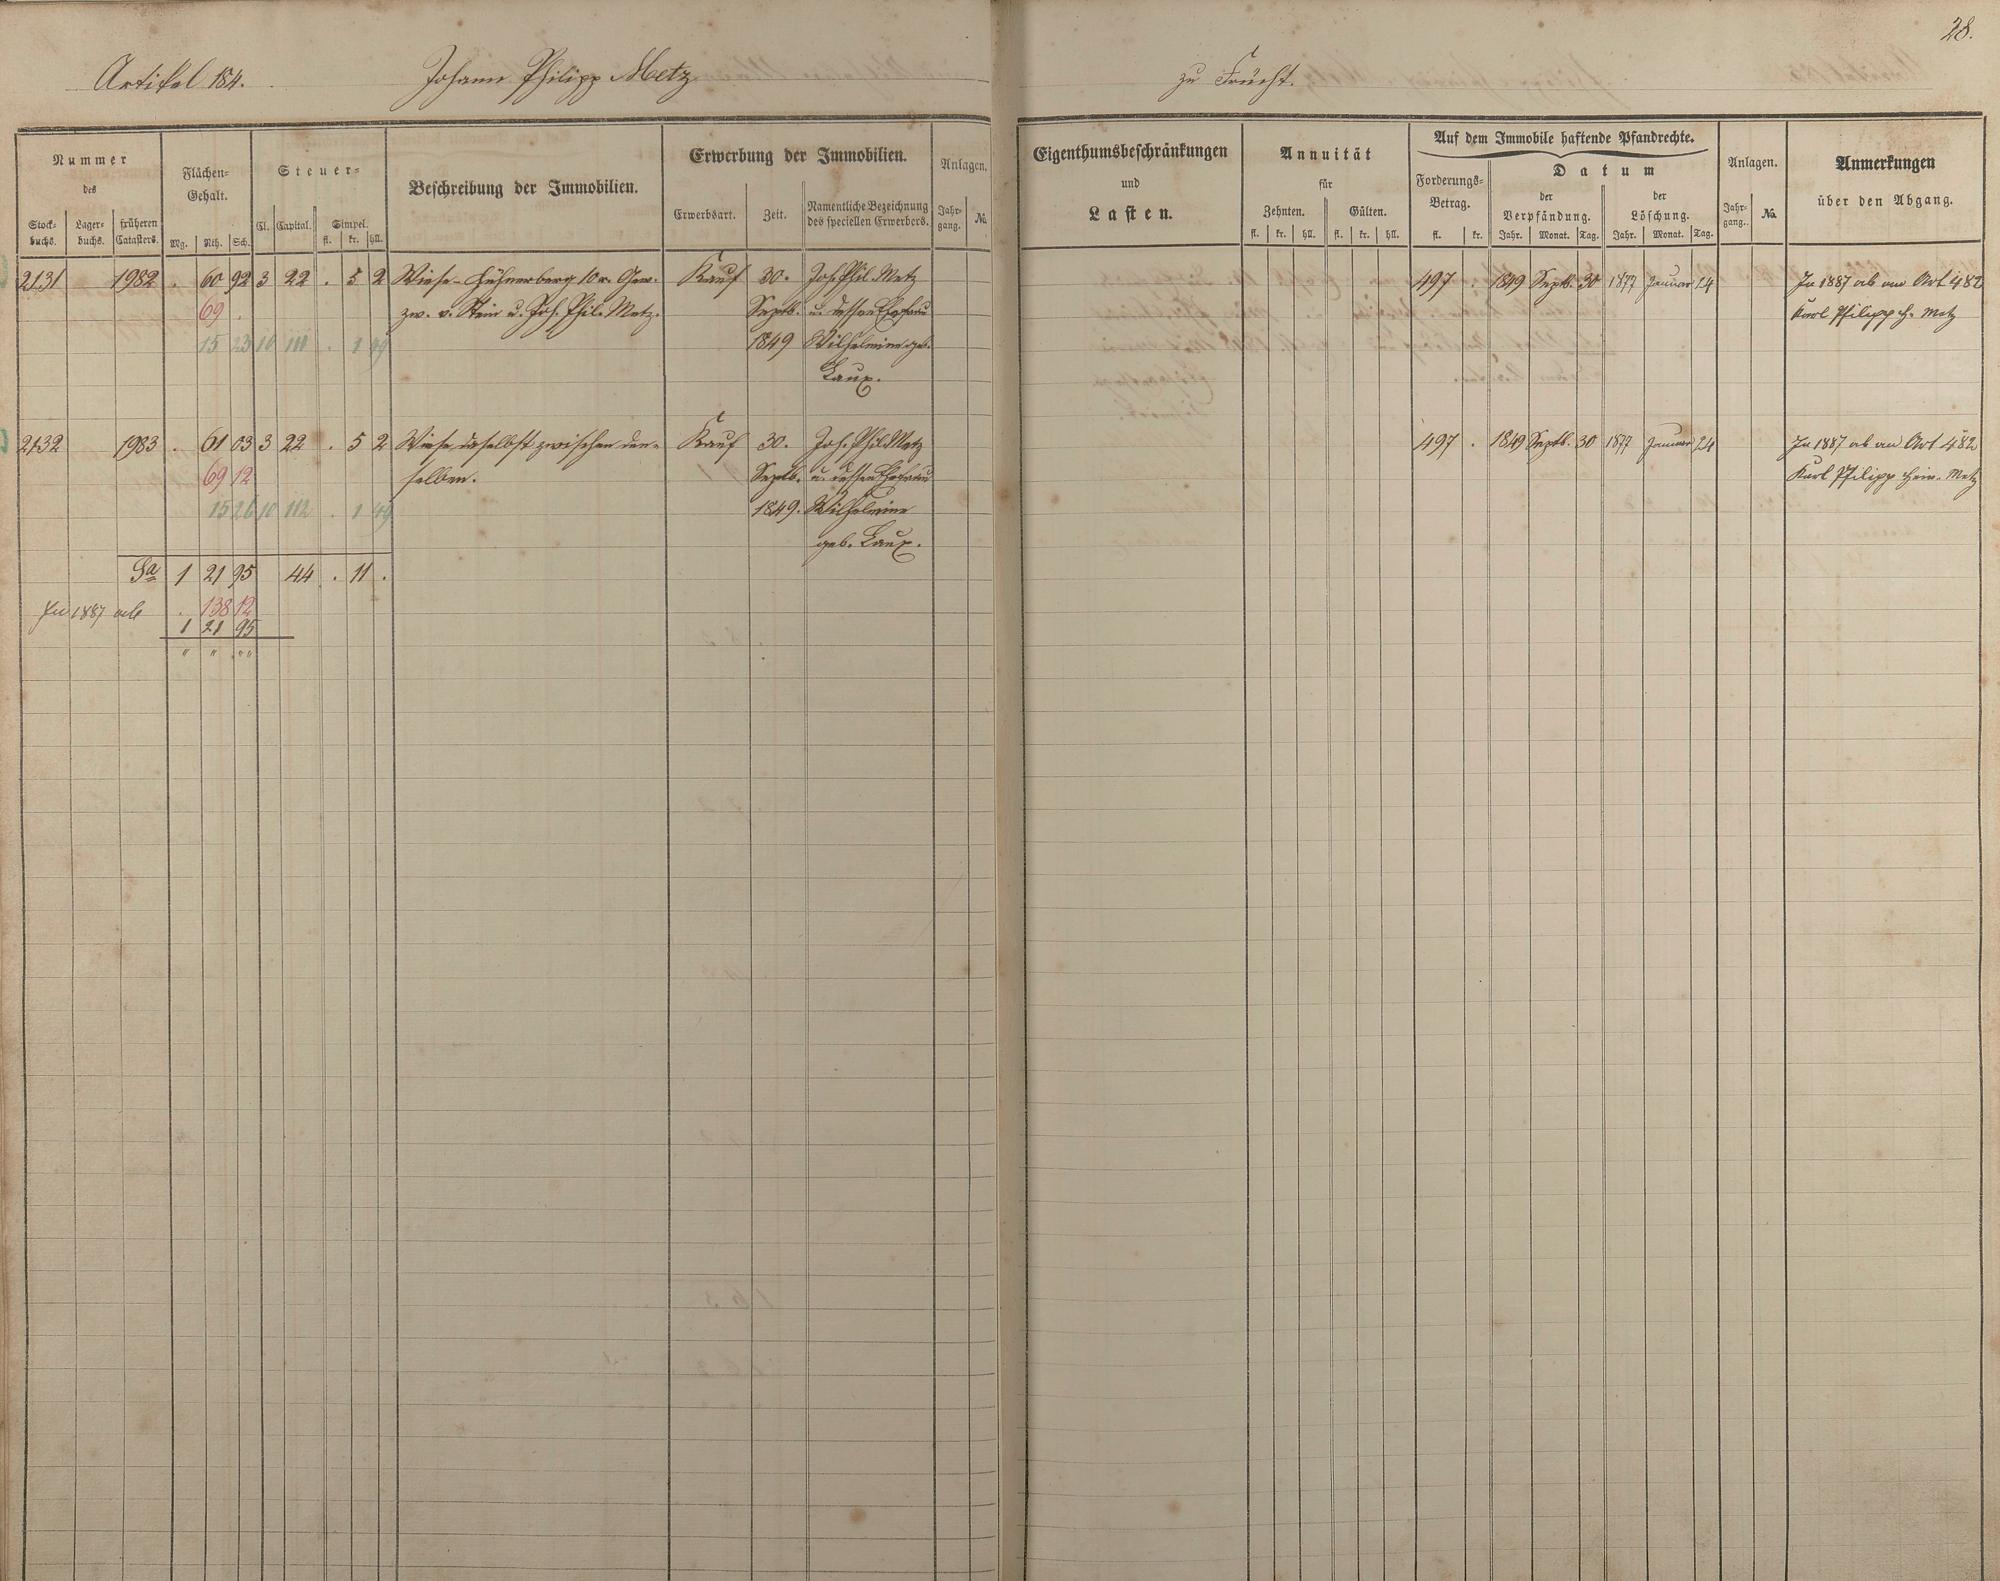 28.
Artikel 184. Johann Philipp Metz zu Frücht.
Nummer des
Stock-buchs. Lager-buchs. früheren Catasters.
Flächen-Gehalt.
Mg. Rth. Sch.
Steuer-
Cl. Capital. Simpel.
fl. kr. hll.
Beschreibung der Immobilien.
Erwerbung der Immobilien.
Erwerbsart. Zeit. Namentliche Bezeichnung des speciellen Erwerbers.
Anlagen.
Jahr-gang. No.
Eigenthumsbeschränkungen
und
Lasten.
Annuität
für
Zehnten. Gülten.
fl. kr. hll. fl. kr. hll.
Auf dem Immobile haftende Pfandrechte.
Forderungs-Betrag.
fl. kr.
Datum
der Verpfändung. der Löschung.
Jahr. Monat. Tag. Jahr. Monat. Tag.
Anlagen.
Jahr-gang. No.
Anmerkungen
über den Abgang.
2131 1982 . 60 92 3 22 . 5 2 Wiese-Hühnerberg 10r. Gew. Kauf 30. Joh. Phil. Metz 497 . 1849 Septb. 30 1877 Januar 24 In 1887 ab an Art 482
69 . zw. v. Stein u. Joh. Phil. Metz. Septb. u. dessen Ehefrau Karl Philipp H. Metz
15 23 10 111 . 1 49 1849 Wilhelmine geb.
Laux.
2132 1983 . 61 03 3 22 . 5 2 Wiese daselbst zwischen den- Kauf 30. Joh. Phil. Metz 497 . 1849 Septb. 30 1877 Januar 24 In 1887 ab an Art 482
69 12 selben. Septb. u. dessen Ehefrau Karl Philipp Hein. Metz
15 26 10 112 . 1 49 1849. Wilhelmine
geb. Laux.
Sa 1 21 95 44 . 11 .
. 138 12
In 1887 ab 1 21 95
" " " "